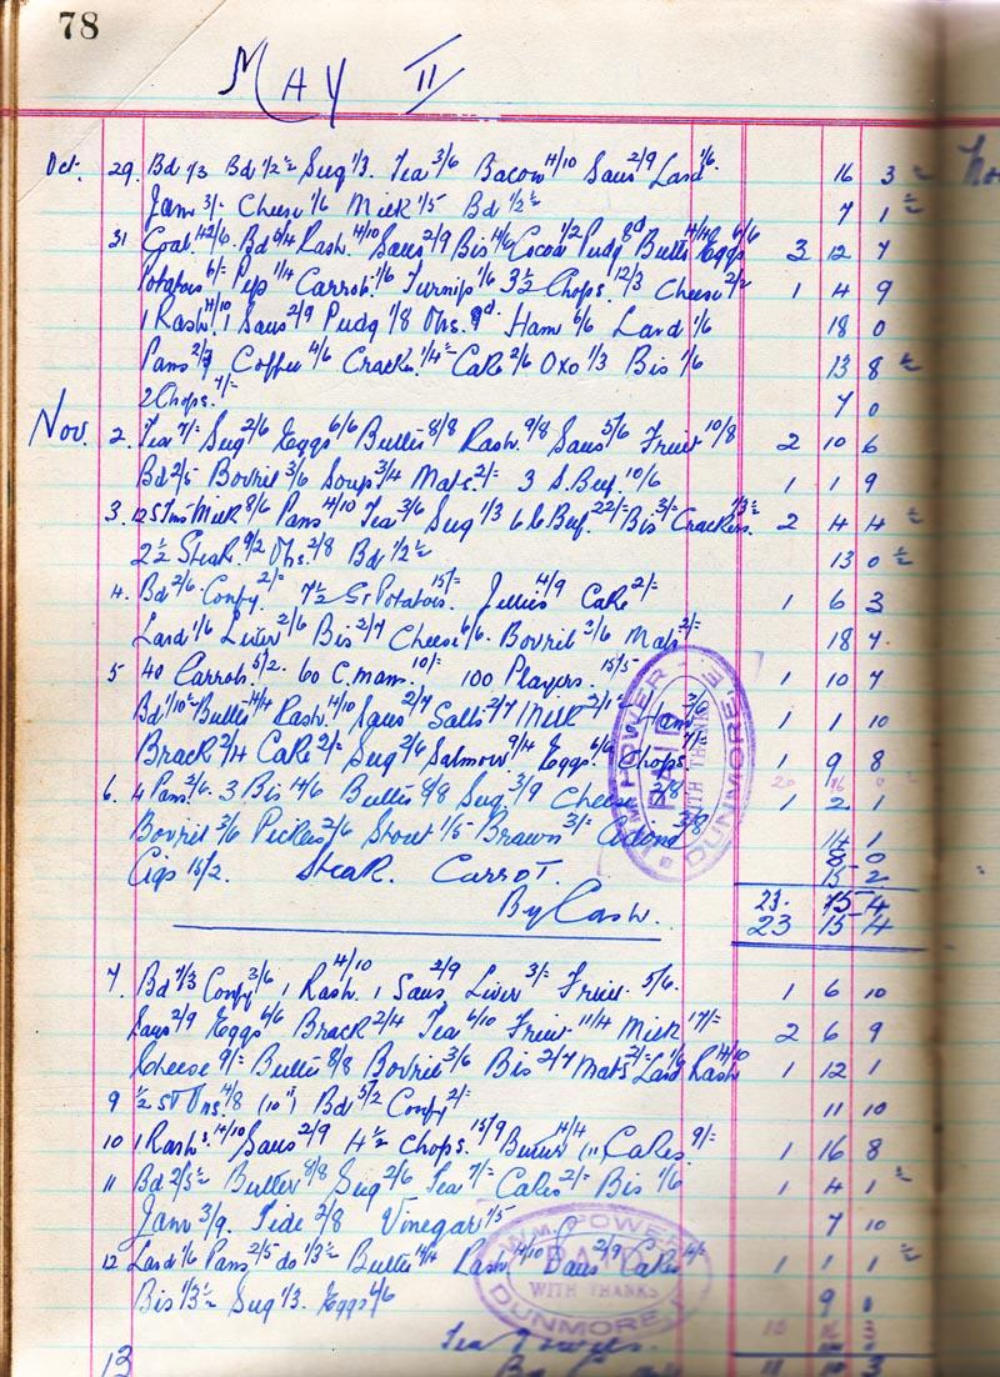 78
MAY II
Oct. 29. Bd 1/3 Bd 1/2½ Sug 1/3. Tea 3/6 Bacon 4/10 Saus 2/9 Lard 1/6. 16 3½
Jam 3/- Cheese 1/6 Milk 1/5 Bd 1/2½ 7 1½
31 Coal Bd 5/4 Rash. 4/10 Saus 2/9 Bis 4/6 Cocoa 1/2 Pudg 8d Butter 4/4 Eggs 6/6 3 12 7
Potatoes 6/- Pep 1/4 Carrot. 1/6 Turnip 1/6 3½ Chops. 12/3 Cheese 2/2 1 4 9
1 Rash. 4/10 1 Saus 2/9 Pudg 1/8 Ons. 9d. Ham 6/6 Lard 1/6 18 0
Pans Coffee 4/6 Crack. 1/4½ Cake 2/6 Oxo 1/3 Bis 1/6 13 8½
2 Chops. 7/- 7 0
Nov. 2. Tea 7/- Sug 2/6 Eggs 6/6 Butter 8/8 Rash. 9/8 Saus 5/6 Fruit 10/8 2 10 6
Bd 2/5 Bovril 3/6 Soup 3/4 Mats. 2/- 3 S. Beef. 10/6 1 1 9
3. 12 5 Tns Milk 8/6 Pans 4/10 Tea 3/6 Sug 1/3 6 lb Beef. 22/- Bis 3/- Crackers. 1/3½ 2 4 4½
2½ Steak. 9/2 Ons. 2/8 Bd 1/2½ 13 0½
4. Bd 2/6. Confy. 2/- 7½ St Potatoes. 15/- Jellies 4/9 Cake 2/- 1 6 3
Lard 1/6 Liver 2/6 Bis 2/7 Cheese 6/6. Bovril 3/6 Mats 2/- 18 7.
5 40 Carrols. 5/2. 60 C. mans. 10/- 100 Players. 15/5 1 10 7
Bd 1/10½ Butter 4/4 Rash. 4/10 Saus 2/7 Salts 2/7 Milk 2/1½ Jam 1 1 10
Brack 2/4 Cake 2/- Sug 2/6 Salmon 9/4 Eggs 6/6 Chops 7/- 1 9 8
6. 4 Pans. 2/6. 3 Bis 4/6 Butter 8/8 Sug. 3/9 Cheese 2/8 1 2 1
Bovril 3/6 Pickles 2/6 Stout 1/5 Brawn 3/- 14 1
Cigs 15/2. Steak. Carrot. 8 0
15 2
By Cash. 23. 15 4
23 15 4
WM POWER PAID WITH THANKS DUNMORE E.
7. Bd 1/3 Confy 3/6 1 Rash. 4/10 1 Saus 2/9 Liver 3/- Fruit. 5/6. 1 6 10
Saus 2/9 Eggs 6/6 Brack 2/4 Tea 6/10 Fruit 11/4 Milk 17/- 2 6 9
Cheese 9/- Butter 8/8 Bovril 3/6 Bis 2/7 Mats 2/- Lard 1/6 Rash 4/10 1 12 1
9 ½ st Ons. 4/8 Bd 5/2 Confy 2/- 11 10
10 1 Rash. 4/10 Saus 2/9 4½ Chops. 15/9 Butter 4/4 Cakes. 9/- 1 16 8
11 Bd 2/5½ Butter 8/8 Sug 2/6 Tea 7/- Cakes 2/- Bis 1/6 1 4 1½
Jam 3/9. Tide 2/8 Vinegar 1/5 7 10
12 Lard 1/6 Pans 2/5 do 1/3½ Butter 4/4 Rash 4/10 Saus 2/9 Cakes 1 1 1½
Bis 1/3½ Sug 1/3. Eggs 6/6 9
WM. POWER PAID WITH THANKS DUNMORE E.
Tea Towels.
13 11 10 3